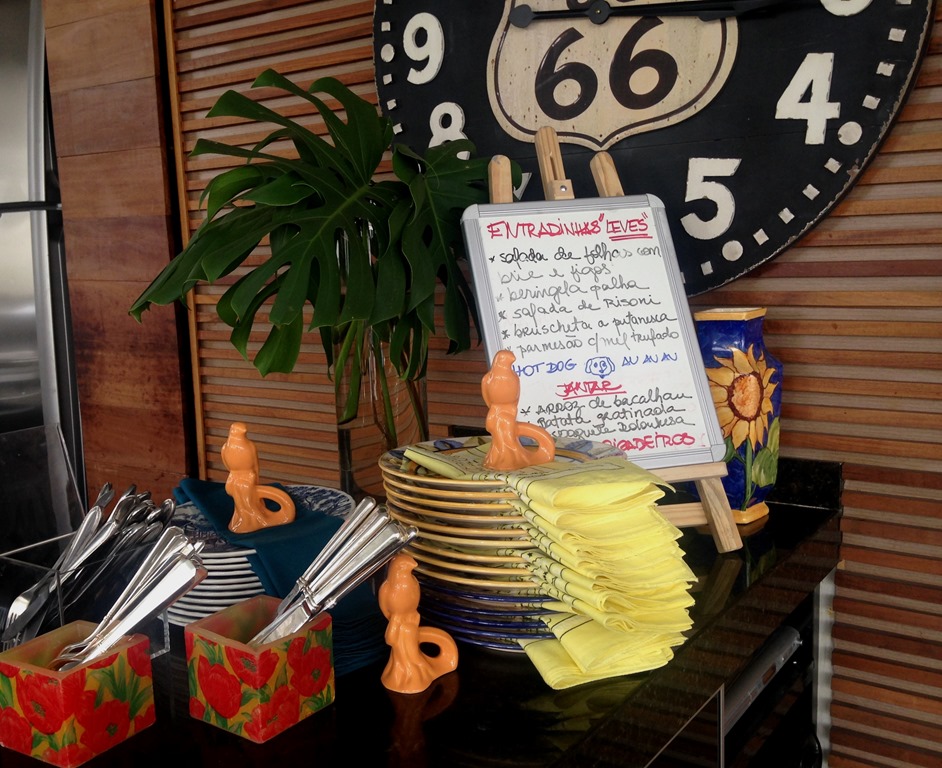 9
8
66
4
5
ENTRADINHAS "LEVES"
* salada de folhas com
brie e figos
* beringela palha
* salada de Risoni
* bruscheta a putanesca
* parmesão c/mel trufado
HOT DOG AU AU AU
JANTAR
* ARROZ de bacalhau
Batata gratinada
espaguete Bolonhesa
BRIGADEIROS